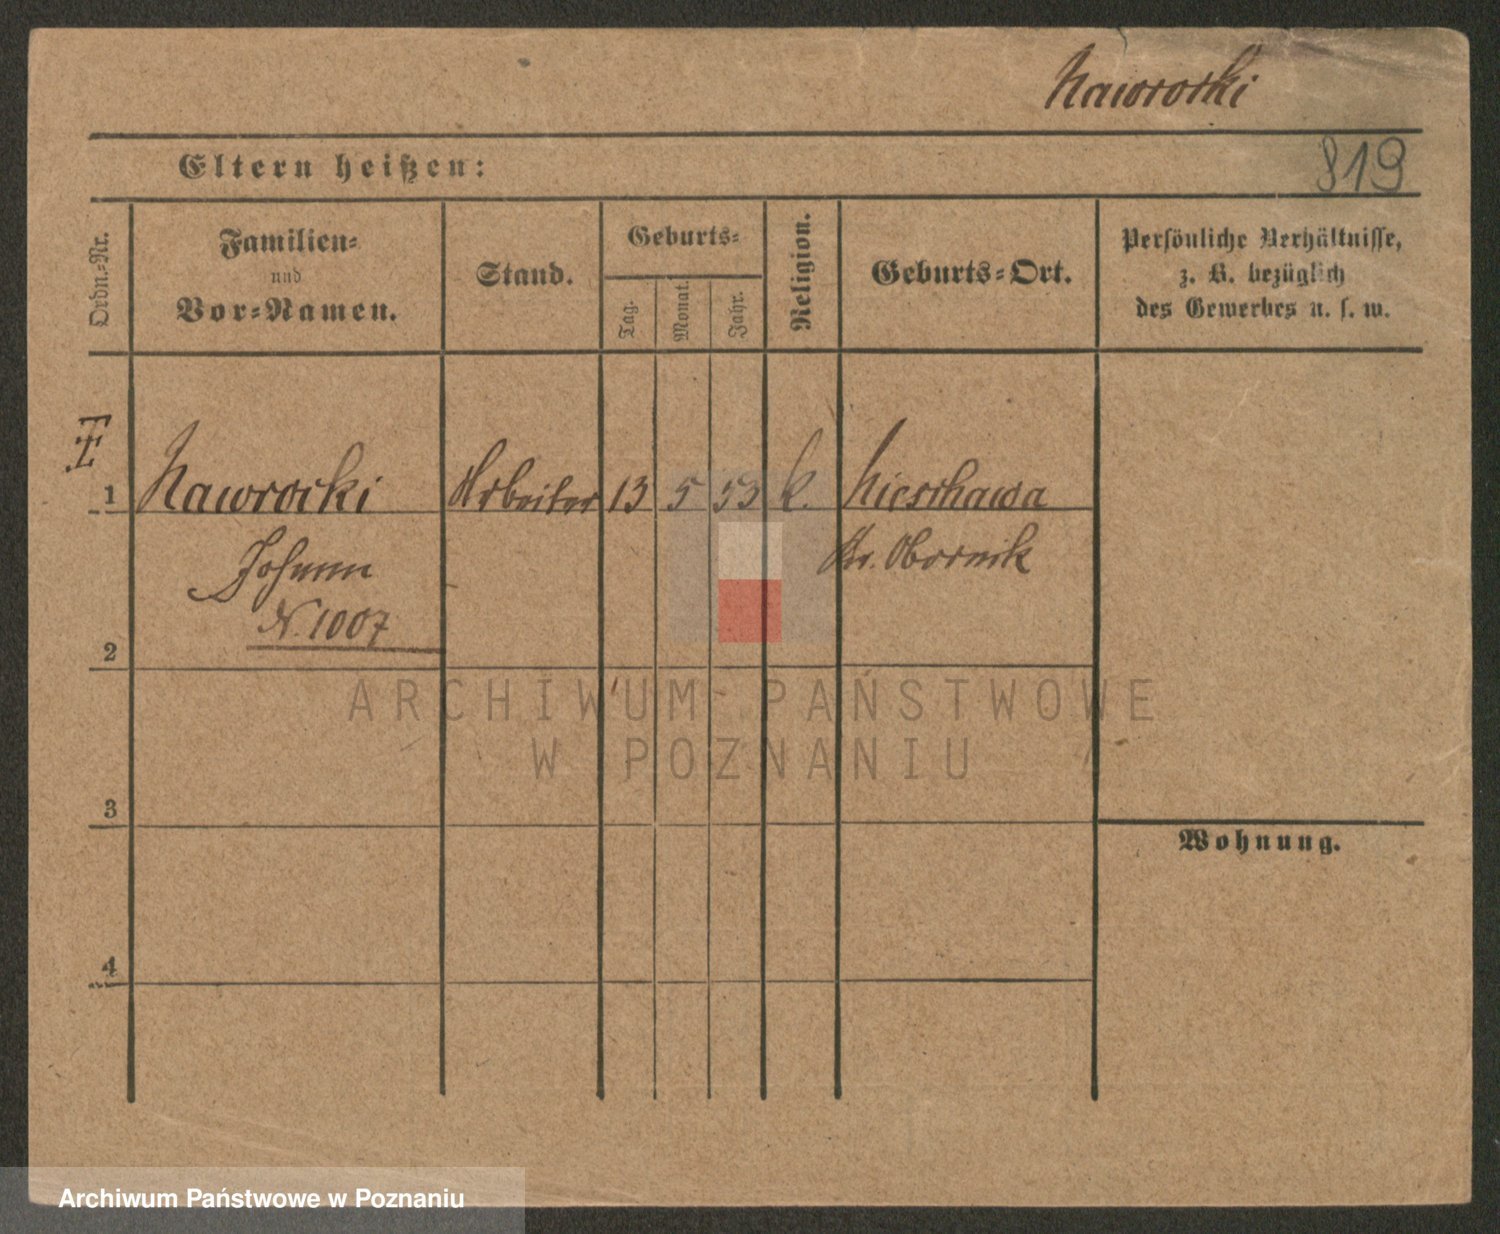 Nawrocki
819
Eltern heißen:
Ordn.=Nr.
Familien=
und
Vor=Namen.
Stand.
Geburts=
Tag.
Monat.
Jahr.
Religion.
Geburts=Ort.
Persönliche Verhältnisse,
z. B. bezüglich
des Gewerbes u. s. w.
1 Nawrocki Arbeiter 13 5 53 k. Nieschawa
Johann Kr. Obornik
N. 1007
2
ARCHIWUM PAŃSTWOWE
W POZNANIU
3
Wohnung.
4
Archiwum Państwowe w Poznaniu